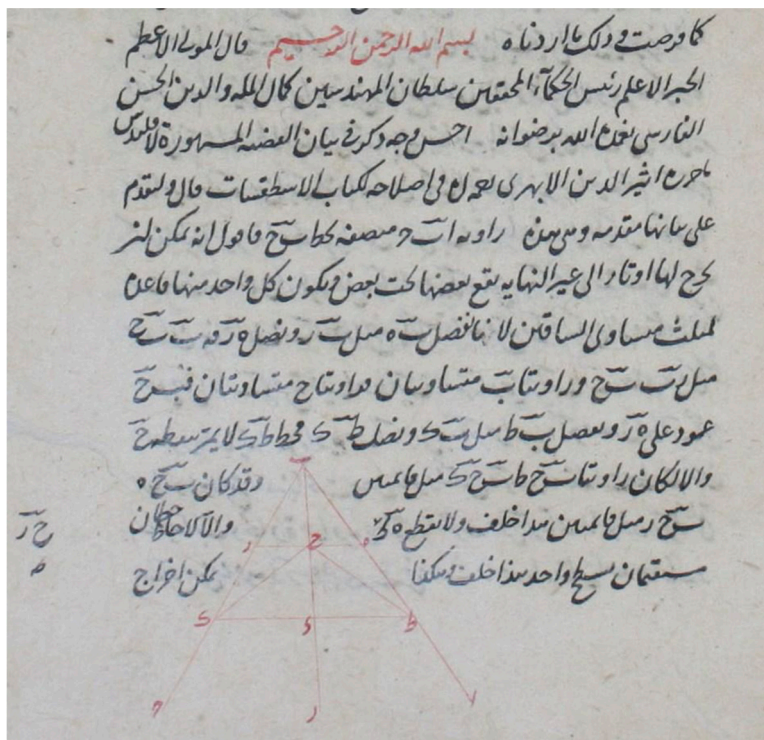 كما فرضت وذلك ما اردناه بسم الله الرحمن الرحيم قال المولى الاعظم
الحبر الاعلم رئيس الحكماء المحققين سلطان المهندسين كمال المله والدين الحسن
الفارسى تغمده الله برضوانه احسن وجه ذكر فى بيان القضيه المشهورة لاقليدس
ما حرره اثير الدين الابهرى فى اصلاحه لكتاب الاسطقسات قال ولنقدم
على بيانها مقدمه وهى هذه زاويه ا ب ح منصفه بخط ب ح فاقول انه يمكن ان
يخرج لها اوتار الى غير النهايه يقع بعضها تحت بعض ويكون كل واحد منها قاعدة
لمثلث متساوى الساقين لانا نفصل ب ه مثل ب ر ونصل ه ر فه ب ب ح
مثل ر ب ب ح وزاويتا ب متساويتان فزاويتا ح متساويتان فب ح
عمود على ه ر ونفصل ب ط مثل ب ك ونصل ط ك فخط ط ك لا يمر بنقطه ح
والا لكان زاويتا ب ح ط ب ح ك مثل قائمتين وقد كان ب ح ه
ب ح ر مثل قائمتين هذا خلف ولا يقطع ه ر والا لاحاط خطان ح ر
مستقيمان بسطح واحد هذا خلف وهكذا يمكن اخراج ه
ب
ر ح ه
ك ط